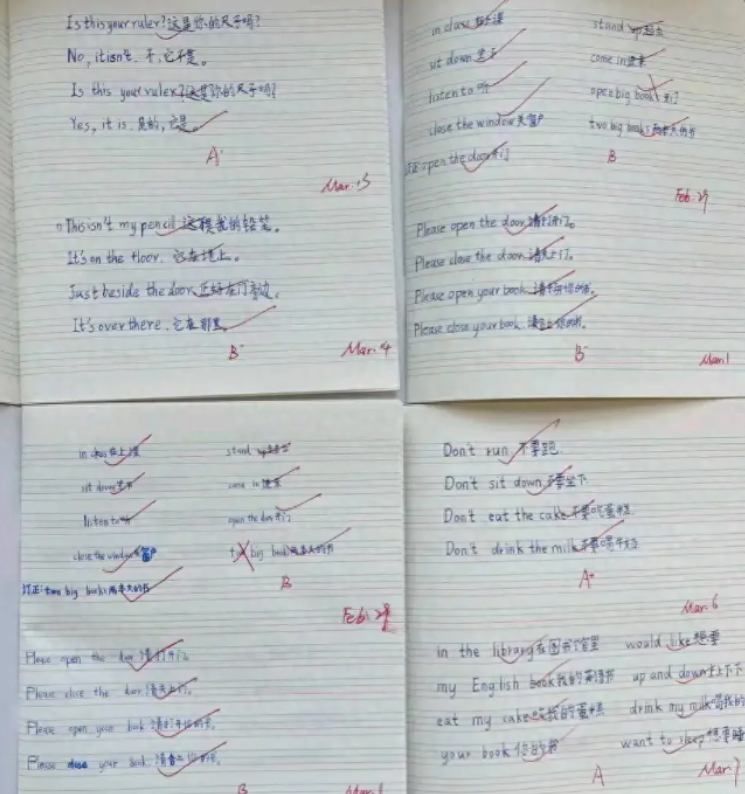 Is this your ruler? 这是你的尺子吗?
No, it isn't. 不,它不是。
Is this your ruler? 这是你的尺子吗?
Yes, it is. 是的,它是。
A
Mar. 3
This isn't my pencil 这我的铅笔。
It's on the floor. 它在地上。
Just beside the door. 正好在门旁边。
It's over there. 它在那里。
B
Mar. 4
in class 上课 stand up 起立
sit down 坐下 come in 进来
listen to 听 open big book 开门
close the window 关窗户 two big books 两本大的书
订正: open the door 开门
B
Feb. 29
Please open the door. 请打开门。
Please close the door. 请关上门。
Please open your book. 请打开你的书。
Please close your book. 请合上你的书。
B
Mar. 1
in class 在上课 stand up
sit down 坐下 come in 进来
listen to 听 open the door 开门
close the window 窗户 big books 两本大的书
订正: two big books 两本大的书
B
Feb. 29
Please open the door. 请打开门。
Please close the door. 请关上门。
Please open your book. 请打开你的书。
Please close your book. 请合上你的书。
B
Don't run 不要跑
Don't sit down 不要坐下
Don't eat the cake 不要吃蛋糕
Don't drink the milk 不要喝牛奶
A+
Mar. 6
in the library 在图书馆里 would like 想要
my English book 我的英语书 up and down 上上下下
eat my cake 吃我的蛋糕 drink my milk 喝我的
your book 你的书 want to sleep 想要睡
A
Mar. 7